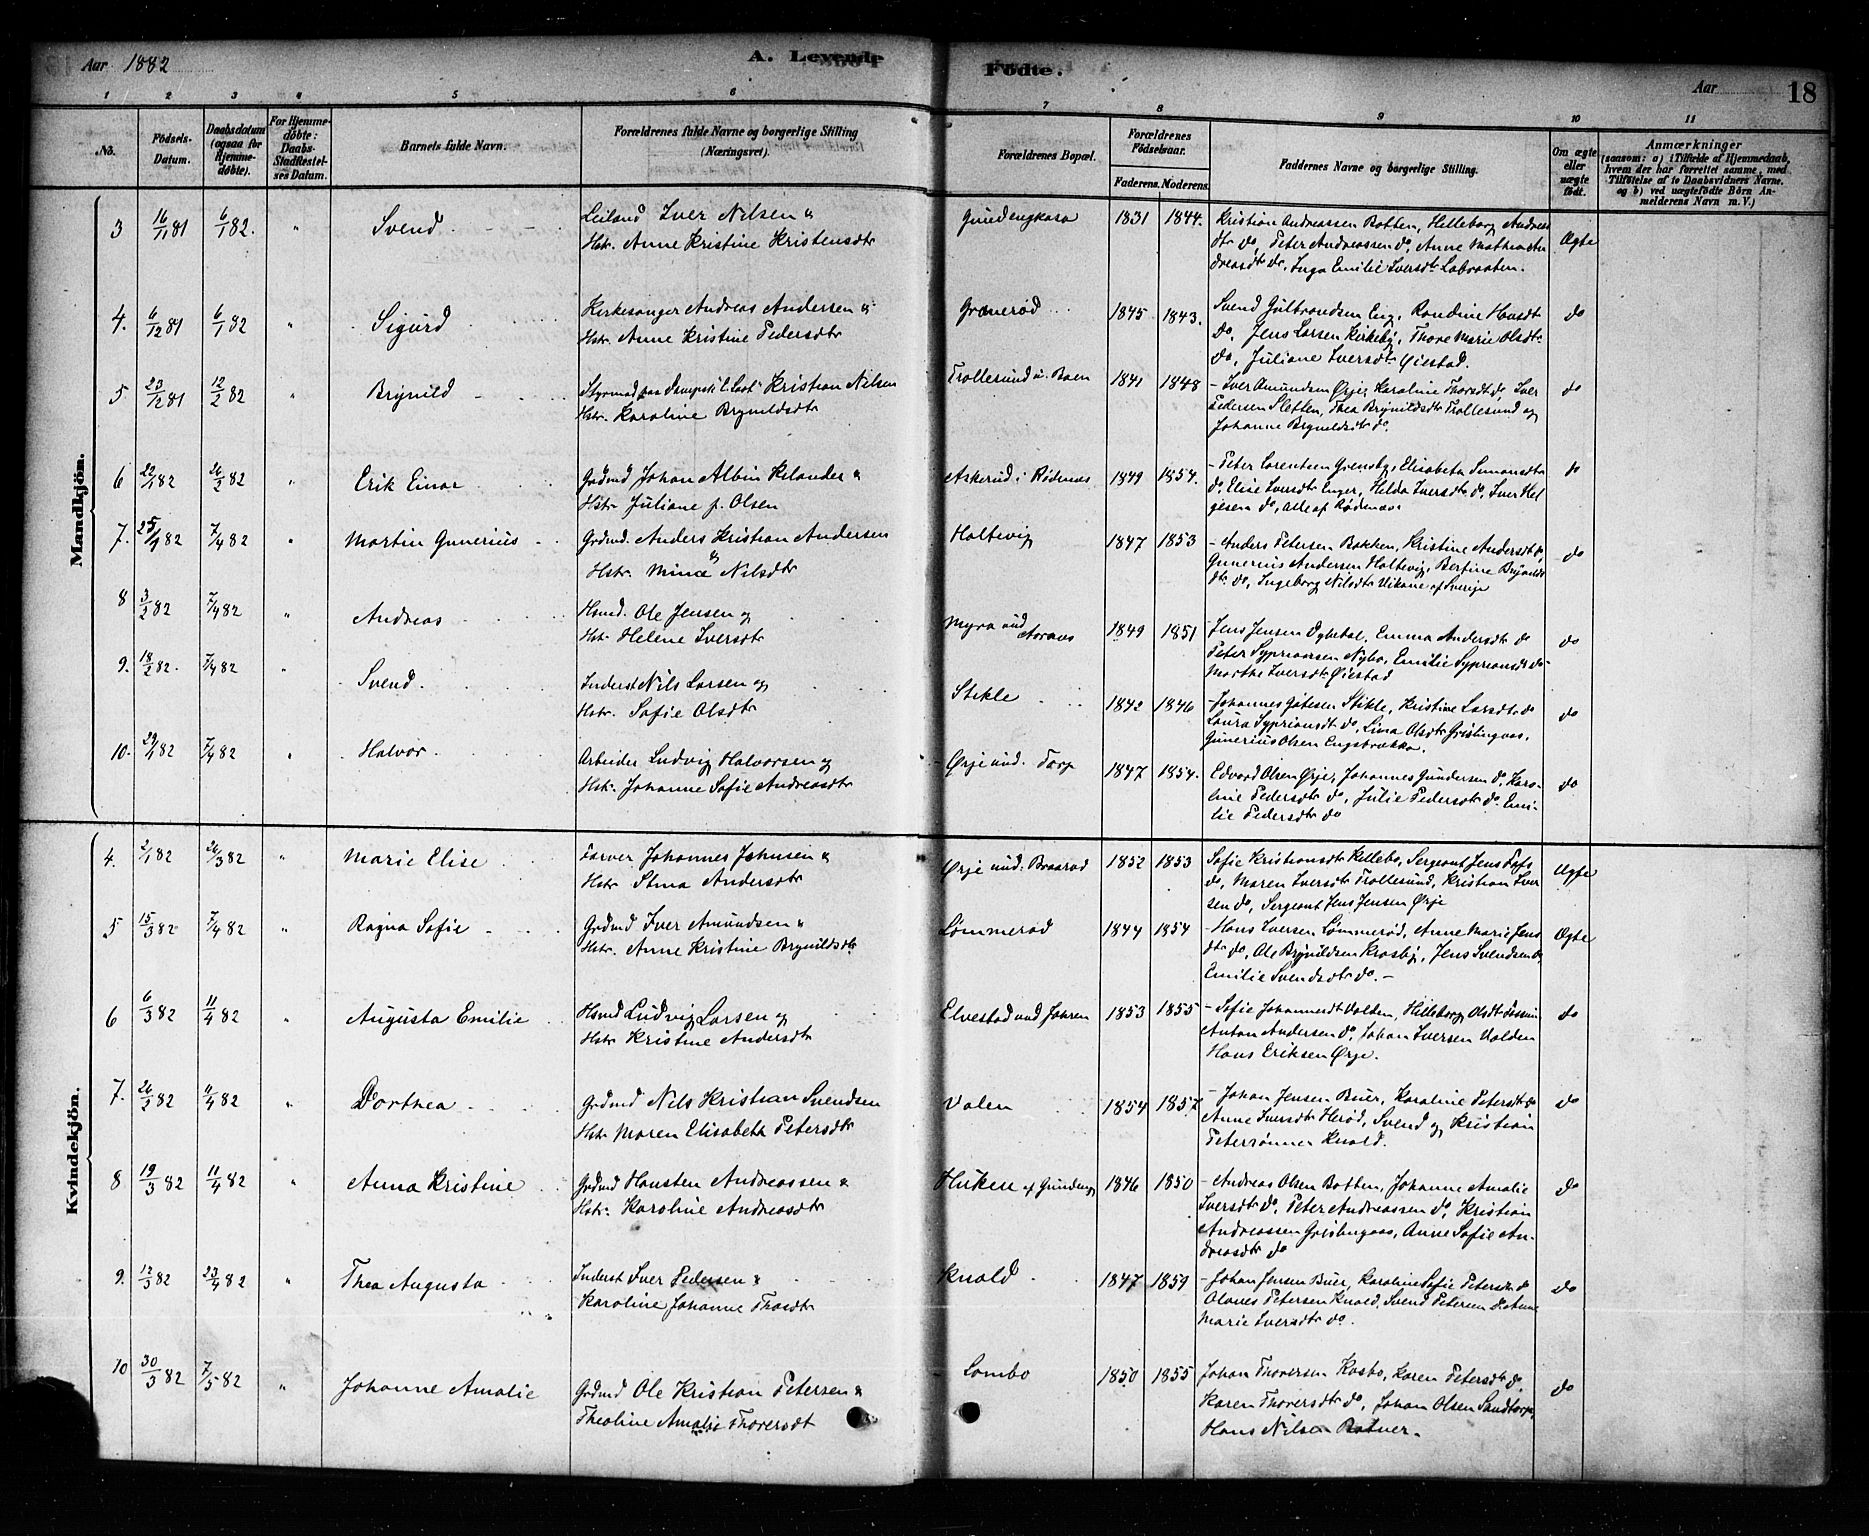 Aar 1882
A. Levende
Fødte.
Aar
18
1 2 3 4 5 6
7 8 9 10 11
No.
Fødsels-Datum.
Daabsdatum (ogsaa for Hjemmedøbte).
For Hjemmedøbte: Daabs-Stadfæstelses Datum.
Barnets fulde Navn.
Forældrenes fulde Navne og borgerlige Stilling (Næringsvei).
Forældrenes Bopæl.
Forældrenes Fødselsaar.
Faderens. Moderens.
Faddernes Navne og borgerlige Stilling.
Om ægte eller uægte født.
Anmærkninger
(saasom: a) i Tilfælde af Hjemmedaab, hvem der har forrettet samme, med Tilføielse af to Daabsvidners Navne. og b) ved uægtefødte Børn Anmelderens Navn m. V.)
Mandkjøn.
3 16/11 81 6/1 82. " Svend
Leiland Iver Nilsen &
Hstr. Anne Kristine Kristensdtr
Gundengkasa 1831 1844.
Kristian Andreassen Botten, Helleborg Andreas
dtr do, Peter Andreassen do, Anne Mathea An
dreasdtr do, Inga Emilie Iversdtr Labraaten.
Ægte
4. 6/12 81 6/1 82 " Sigurd
Kirkesanger Andreas Andersen &
Hstr. Anne Kristine Pedersdtr
Grønerød 1845 1843.
Svend Gulbrandsen Eng, Rondine Hansdtr
do, Jens Larsen Kirkeby, Thore Marie Olsdtr
do, Juliane Iversdtr Øiestad.
do
5 23/12 81 12/2 82 " Brynild
Kristian Nilsen
Hstr. Karoline Brynildsdtr
Trollesund u. Boen 1841 1848
- Iver Amundsen Ørje, Karoline Thorsdtr do, Iver
Pedersen Sletten, Thea Brynildsdtr Trollesund og
Johanne Brynildsdtr do.
do
6 22/1 82 26/2 82 " Erik Einar
Grdmd Johan Albin Helander &
Hstr Juliane f. Olsen
Askerud i Rødenæs 1849 1854.
- Peter Lorentsen Grensby, Elisabeth Simonsdtr
do, Elise Iversdtr Enger, Helda Iversdtr do, Iver Hel
gesen do, alle af Rødenæs
do
7. 25/1 82 7/4 82 " Martin Gunerius
Grdmd. Anders Kristian Andersen
&
Hstr. Mina Nilsdtr
Holtevig 1847 1853
- Anders Petersen Bakken, Kristine Andersdtr do,
Gunerius Andersen Holtevig, Bertine Brynilds
dtr do, Ingeborg Nilsdtr Vikane af Sverige
do
8 3/2 82 7/4 82 " Andreas
Hsmd. Ole Jensen og
Hstr Helene Iversdtr
Myra und Aaraas 1849 1851
- Jens Jensen Dybedal, Emma Andersdtr do
Peter Syprianssen Nybo, Emilie Sypriansdtr do
Marthe Iversdtr Øiestad
do
9. 18/2 82. 7/4 82 " Svend.
Inderst Nils Larsen og
Hstr. Sofie Olsdtr
Stikle 1842 1846
- Johannes Gabesen Stikle, Kristine Larsdtr do
Laura Sypriansdtr do, Lina Olsdtr Grislingaas,
Gunerius Olsen Engsbrække.
do
10. 29/1 82 7/4 82 " Halvor
Arbeider Ludvig Halvorsen og
Hstr. Johanne Sofie Andreasdtr
Ørje und. Tarp 1847 1854.
Edvard Olsen Ørje, Johannes Gundersen do, Karo-
line Pedersdtr do, Julie Pedersdtr do, Emi-
lie Pedersdtr do
do
Kvindekjøn.
4. 2/1 82 26/3 82 " Marie Elise
Farver Johannes Johnsen &
Hstr Stina Andersdtr
Ørje und. Braarød 1852 1853
Sofie Kristiansdtr Killebo, Sergeant Jens
do, Maren Iversdtr Trollesund, Kristian Iver
sen do, Sergeant Jens Jensen Ørje
Ægte
5 15/3 82 7/4 82 " Ragna Sofie
Grdmd Iver Amundsen &
Hstr. Anne Kristine Brynildsdtr
Lømmerød 1844 1854
- Hans Iversen Lømmerød, Anne Marie Jens
dtr do, Ole Brynildsen Krosby, Jens Svendsen do,
Emilie Svendsdtr do. -
Ægte
6 6/3 82 11/4 82 " Augusta Emilie
Hsmd Ludvig Larsen og
Hstr Kristine Andersdtr
Elvestad und Jahren 1853 1855
- Sofie Johannesdtr Volden, Helleborg Olsdtr
Anton Andersen do, Johan Iversen Volden
Hans Eriksen Ørje.
do
7. 26/2 82 11/4 82 " Dorthea
Grdmd Nils Kristian Svendsen
Hstr Maren Elisabeth Petersdtr
Volen 1854 1857
- Johan Jensen Buer, Karoline Petersdtr do
Anne Iversdtr Herød, Svend og Kristian
Petersønner Knold.
do
8 19/3 82 11/4 82 " Anna Kristine
Grdmd Hansten Andreassen &
Hstr. Karoline Andreasdtr
Huken af Gundeng 1846 1850
- Andreas Olsen Botten, Johanne Amalie
Iversdtr do, Peter Andreassen do, Kristian
Andreassen Grislingaas, Anne Sofie An-
dreasdtr do
do
9. 12/3 82 23/4 82 " Thea Augusta
Inderst Iver Pedersen &
Karoline Johanne Thordtr
Knold 1847 1859
- Johan Jensen Buer, Karoline Sofie Petersdtr do
Olaves Petersen Knold, Svend Petersen do, Anne
Marie Iversdtr do.
do
10 30/3 82 7/5 82 " Johanne Amalie
Grdmd Ole Kristian Petersen &
Theoline Amalie Thoversdt
Lombo 1850 1855
Johan Thoversen Kasbo, Karen Petersdtr do,
Karen Thoversdtr do, Johan Olsen Sandtorp,
Hans Nilsen Rotner.
do